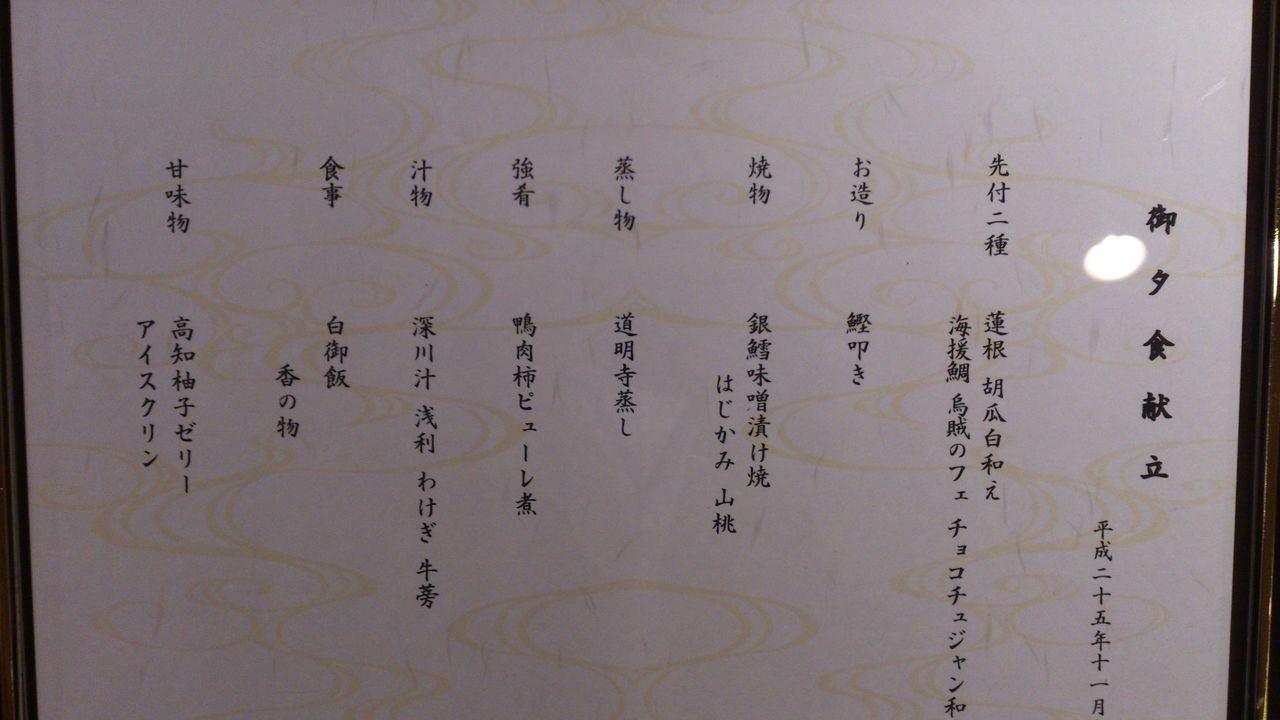 御夕食献立
平成二十五年十一月
先付二種 蓮根 胡瓜白和え
海援鯛 烏賊のフェ チョコチュジャン和
お造り 鰹叩き
焼物 銀鱈味噌漬け焼
はじかみ 山桃
蒸し物 道明寺蒸し
強肴 鴨肉柿ピューレ煮
汁物 深川汁 浅利 わけぎ 牛蒡
食事 白御飯
香の物
甘味物 高知柚子ゼリー
アイスクリン